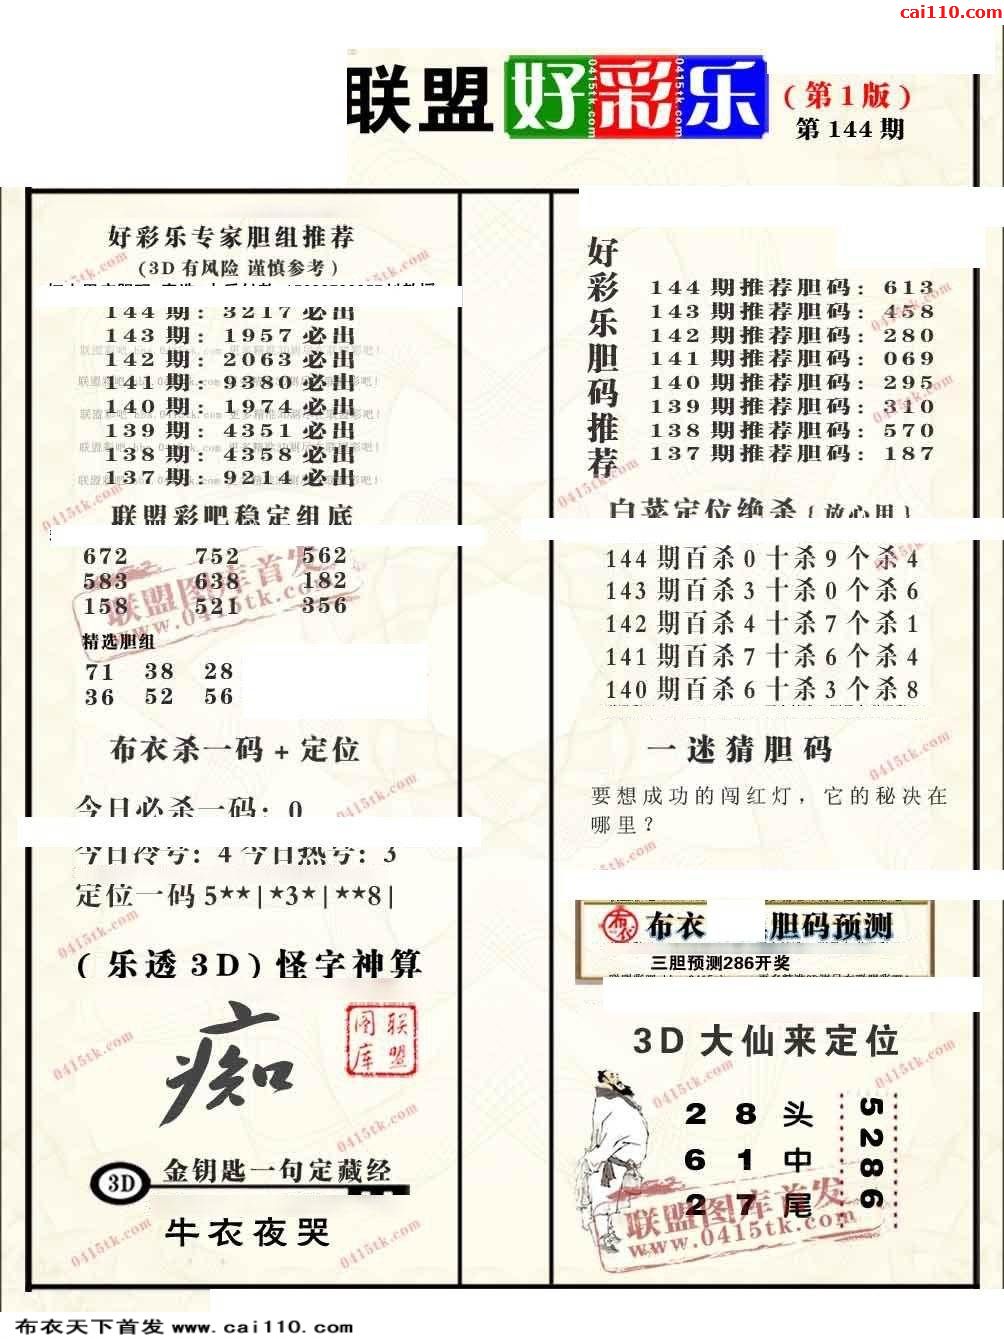 cai110.com
联盟 好彩乐
(第1版)
第144期
好彩乐专家胆组推荐
(3D有风险 谨慎参考)
144期: 3217必出
143期: 1957必出
142期: 2063必出
141期: 9380必出
140期: 1974必出
139期: 4351必出
138期: 4358必出
137期: 9214必出
联盟彩吧稳定组底
672 752 562
583 638 182
158 521 356
精选胆组
71 38 28
36 52 56
布衣杀一码+定位
今日必杀一码: 0
今日冷号: 4 今日热号: 3
定位一码5**|*3*|**8|
(乐透3D)怪字神算
痴
联盟图库
3D 金钥匙一句定藏经
牛衣夜哭
好彩乐胆码推荐
144期推荐胆码: 613
143期推荐胆码: 458
142期推荐胆码: 280
141期推荐胆码: 069
140期推荐胆码: 295
139期推荐胆码: 310
138期推荐胆码: 570
137期推荐胆码: 187
白菜定位绝杀{放心用}
144期百杀0十杀9个杀4
143期百杀3十杀0个杀6
142期百杀4十杀7个杀1
141期百杀7十杀6个杀4
140期百杀6十杀3个杀8
一迷猜胆码
要想成功的闯红灯，它的秘决在
哪里？
布衣 布衣 胆码预测
三胆预测286开奖
3D大仙来定位
2 8 头
6 1 中
2 7 尾
5286
联盟图库首发
www.0415tk.com
0415tk.com
布衣天下首发 www.cai110.com